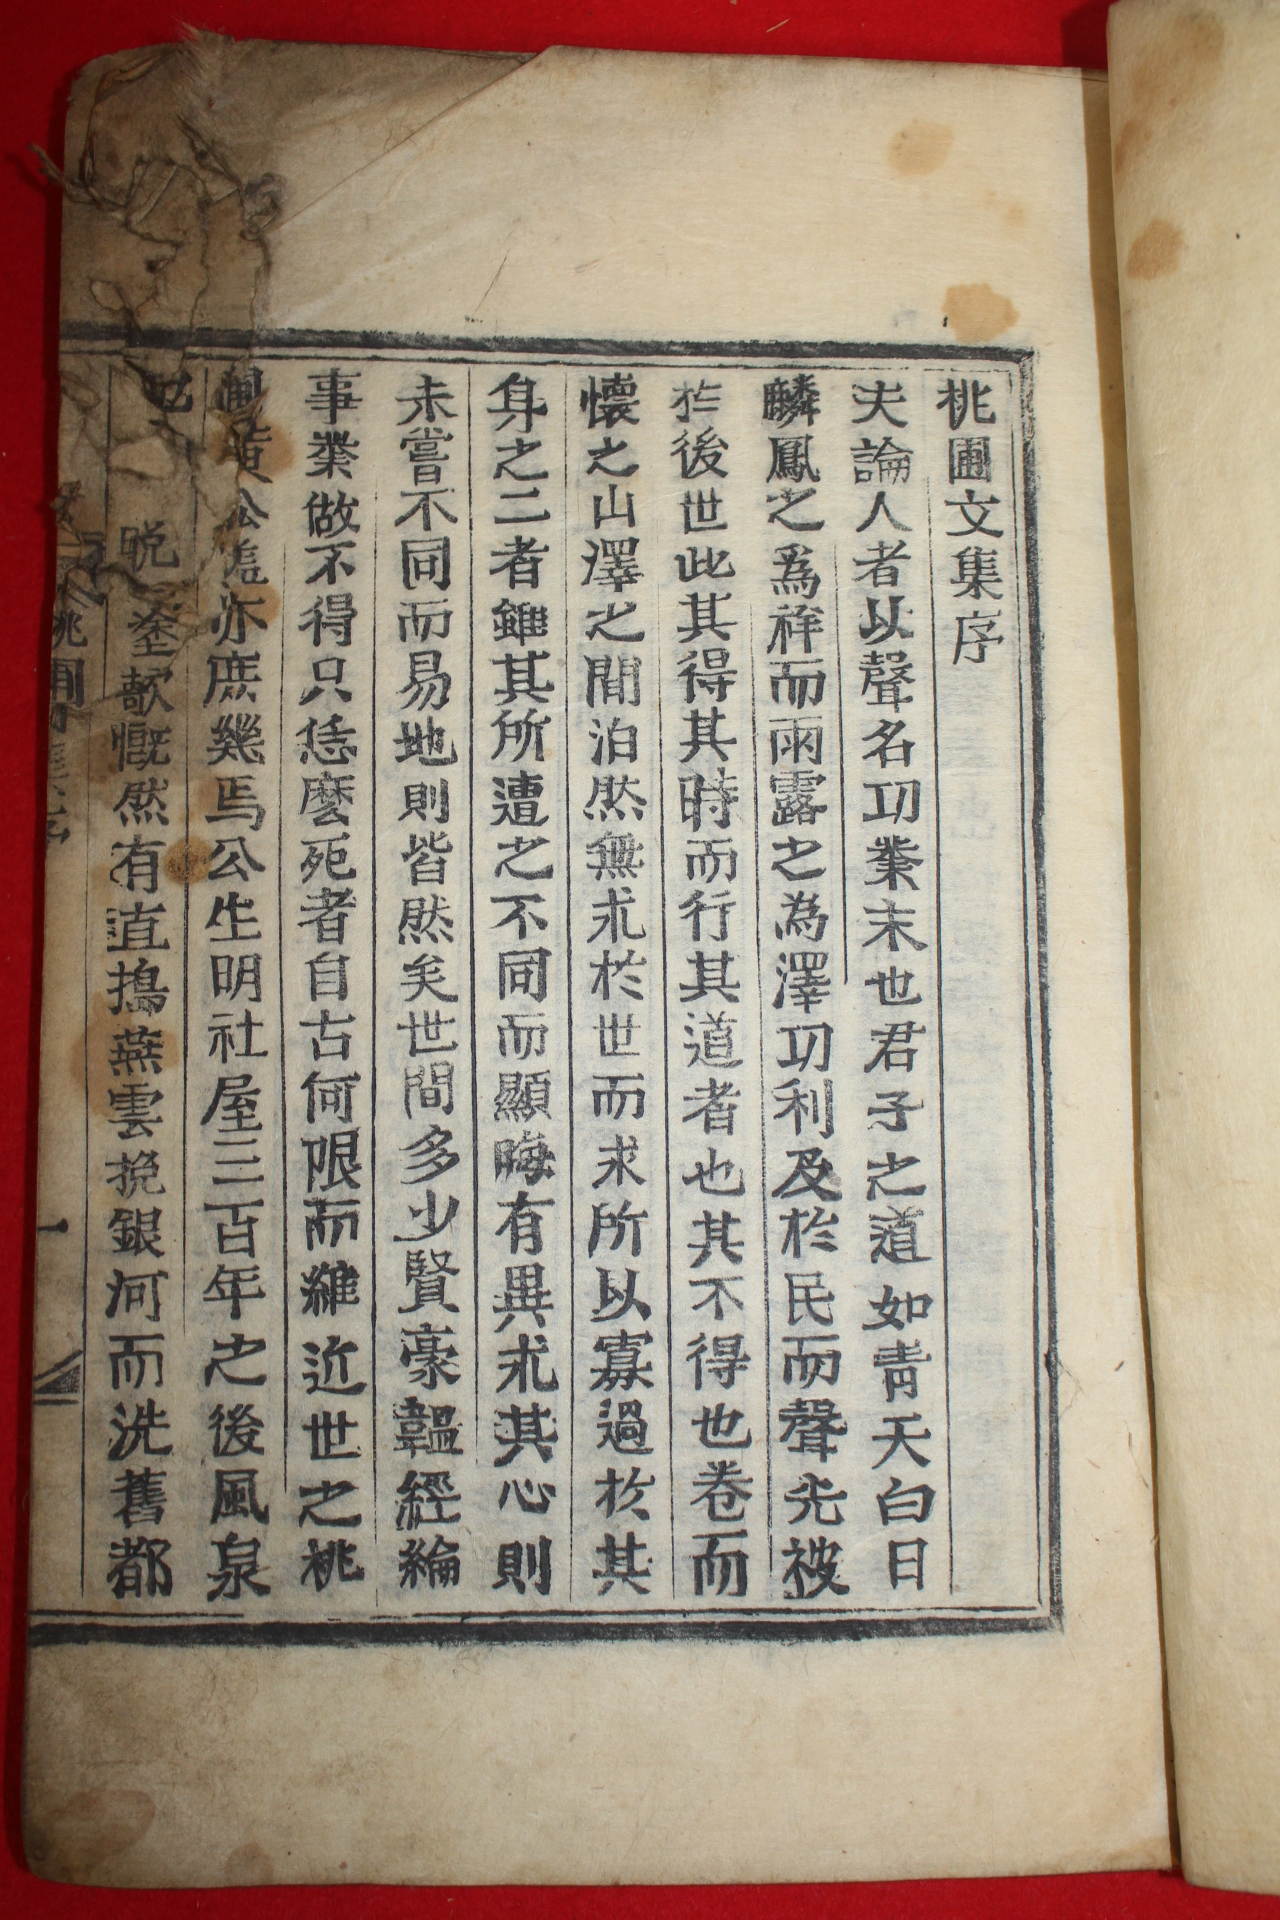 桃圃文集序
夫論人者以聲名功業末也君子之道如靑天白日
麟鳳之爲祥而雨露之為澤功利及於民而聲光被
於後世此其得其時而行其道者也其不得也卷而
懷之山澤之間泊然無求於世而求所以寡過於其
身之二者雖其所遭之不同而顯晦有異求其心則
未嘗不同而易地則皆然矣世間多少賢豪韞經綸
事業做不得只恁麽死者自古何限而雖近世之桃
圃黃公亦庶幾焉公生明社屋三百年之後風泉
晩塗歎慨然有直搗燕雲挽銀河而洗舊都
桃圃
一